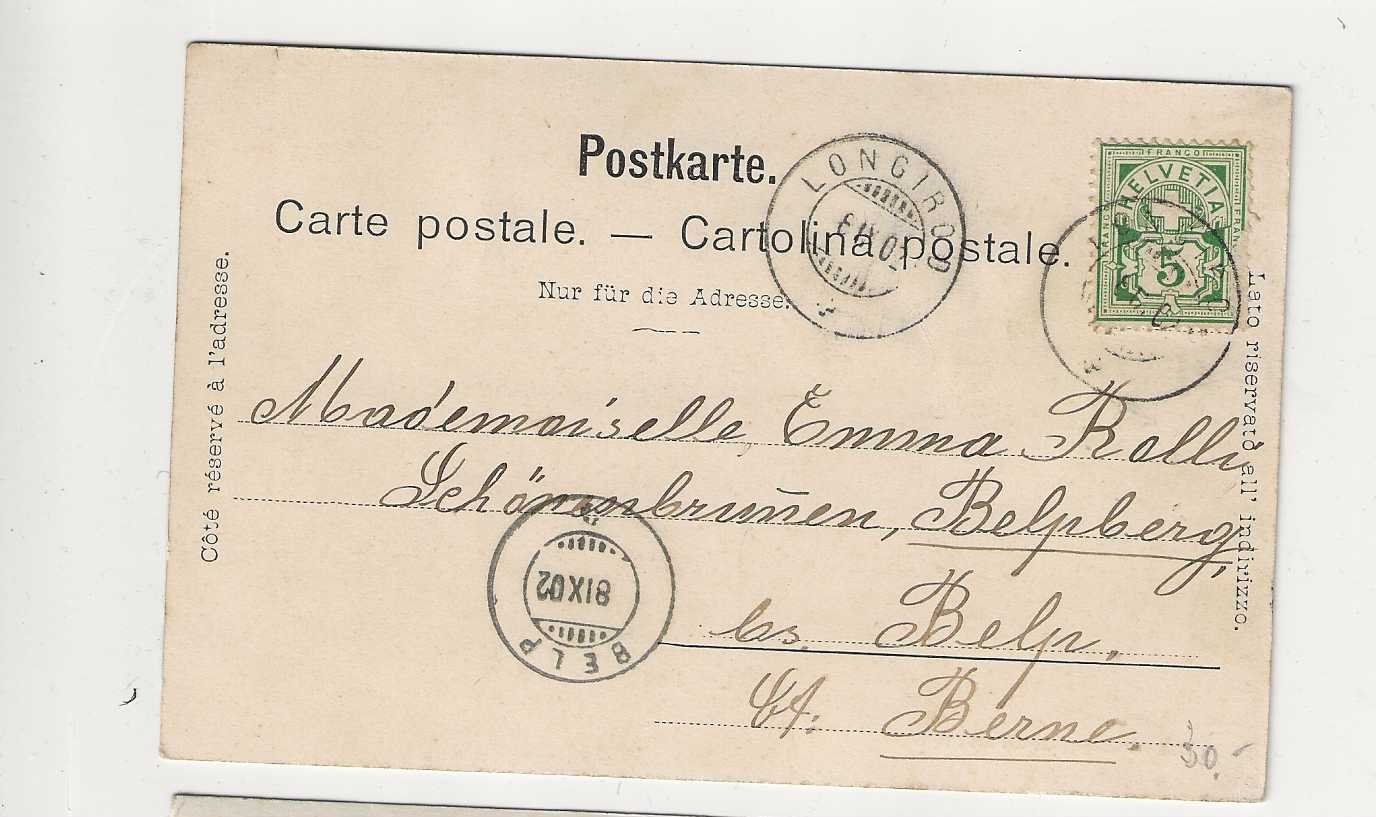 Postkarte.
Carte postale. — Cartolina postale.
Nur für die Adresse.
Côté réservé à l'adresse.
Lato riservato all' indirizzo.
LONGIROD
FRANCO
HELVETIA
5
Mademoiselle, Emma Rolli
Schönenbrunnen, Belpberg,
bs. Belp,
Ct. Berne.
BELP
8 IX 02
30.-